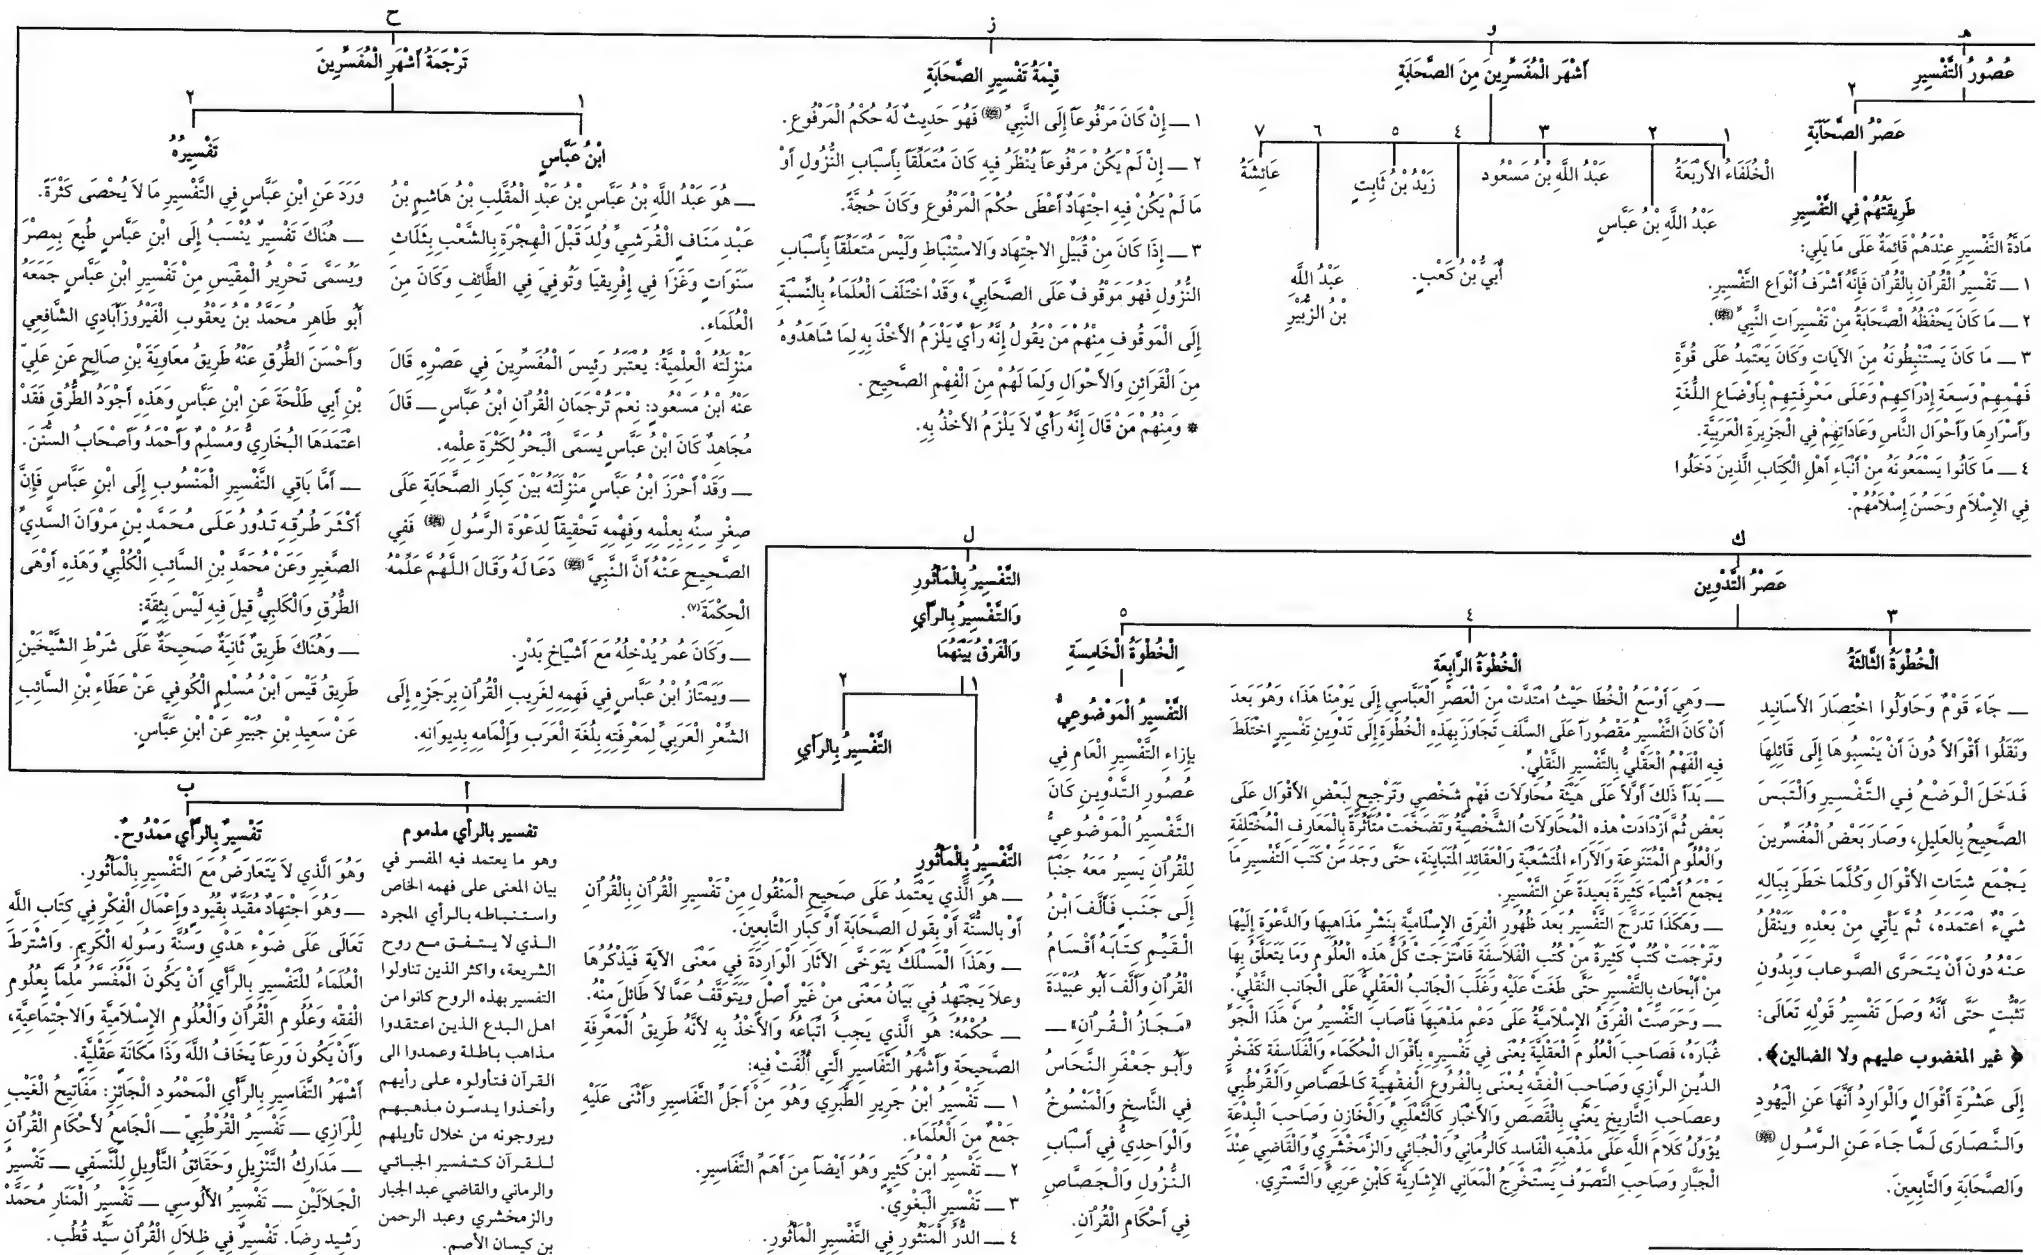 هـ
عُصُورُ التَّفْسِيرِ
٢
عَصْرُ الصَّحَابَةِ
طَرِيقَتُهُمْ فِي التَّفْسِيرِ
مَادَّةُ التَّفْسِيرِ عِنْدَهُمْ قَائِمَةٌ عَلَى مَا يَلِي:
١ ــ تَفْسِيرُ الْقُرْآنِ بِالْقُرْآنِ فَإِنَّهُ أَشْرَفُ أَنْوَاعِ التَّفْسِيرِ.
٢ ــ مَا كَانَ يَحْفَظُهُ الصَّحَابَةُ مِنْ تَفْسِيرَاتِ النَّبِيِّ (ﷺ).
٣ ــ مَا كَانُ يَسْتَنْبِطُونَهُ مِنَ الآيَاتِ وَكَانَ يَعْتَمِدُ عَلَى قُوَّةِ
فَهْمِهِمْ وَسِعَةِ إِدْرَاكِهِمْ وَعَلَى مَعْرِفَتِهِمْ بِأَوْضَاعِ اللُّغَةِ
وَأَسْرَارِهَا وَأَحْوَالِ النَّاسِ وَعَادَاتِهِمْ فِي الْجَزِيرَةِ الْعَرَبِيَّةِ.
٤ ــ مَا كَانُوا يَسْمَعُونَهُ مِنْ أَنْبَاءِ أَهْلِ الْكِتَابِ الَّذِينَ دَخَلُوا
فِي الإِسْلاَمِ وَحَسُنَ إِسْلاَمُهُمْ.
و
أَشْهَر الْمُفَسِّرِينَ مِنَ الصَّحَابَةِ
١
الْخُلَفَاءُ الأَرْبَعَةُ
٢
عَبْدُ اللَّهِ بْنُ عَبَّاسٍ
٣
عَبْدُ اللَّهِ بْنُ مَسْعُود
٤
أُبَيُّ بْنُ كَعْب.
٥
زَيْدُ بْنُ ثَابِت
٦
عَبْدُ اللَّهِ
بْنُ الزُّبَيْرِ
٧
عَائِشَةُ
ز
قِيْمَةُ تَفْسِيرِ الصَّحَابَةِ
١ ــ إِنْ كَانَ مَرْفُوعاً إِلَى النَّبِيِّ (ﷺ) فَهُوَ حَدِيثٌ لَهُ حُكْمُ الْمَرْفُوعِ.
٢ ــ إِنْ لَمْ يَكُنْ مَرْفُوعاً يُنْظَرُ فِيهِ كَانَ مُتَعَلِّقاً بِأَسْبَابِ النُّزُولِ أَوْ
مَا لَمْ يَكُنْ فِيهِ اجْتِهَادٌ أَعْطَى حُكْمَ الْمَرْفُوعِ وَكَانَ حُجَّةً.
٣ ــ إِذَا كَانَ مِنْ قُبَيْلِ الاجْتِهَادِ وَالاسْتِنْبَاطِ وَلَيْسَ مُتَعَلِّقاً بِأَسْبَابِ
النُّزُولِ فَهُوَ مَوْقُوفٌ عَلَى الصَّحَابِيِّ، وَقَدْ اخْتَلَفَ الْعُلَمَاءُ بِالنِّسْبَةِ
إِلَى الْمَوْقُوفِ مِنْهُمْ مَنْ يَقُولُ إِنَّهُ رَأْيٌ يَلْزَمُ الأَخْذُ بِهِ لِمَا شَاهَدُوهُ
مِنَ الْقَرَائِنِ وَالأَحْوَالِ وَلِمَا لَهُمْ مِنَ الْفَهْمِ الصَّحِيحِ .
* وَمِنْهُمْ مَنْ قَالَ إِنَّهُ رَأْيٌ لاَ يَلْزَمُ الأَخْذُ بِهِ.
ح
تَرْجَمَةُ أَشْهَرِ الْمُفَسِّرِينَ
١
ابْنُ عَبَّاسٍ
ــ هُوَ عَبْدُ اللَّهِ بْنُ عَبَّاسِ بْنُ عَبْدِ الْمُقَلِّبِ بْنُ هَاشِمِ بْنُ
عَبْدِ مَنَافِ الْقُرَشِيِّ وُلِدَ قَبْلَ الْهِجْرَةِ بِالشَّعْبِ بِثَلَاثِ
سَنَوَاتٍ وَغَزَا فِي إِفْرِيقِيَا وَتُوفِيَ فِي الطَّائِفِ وَكَانَ مِنَ
الْعُلَمَاءِ.
مَنْزِلَتُهُ الْعِلْمِيَّةُ: يُعْتَبَرُ رَئِيسَ الْمُفَسِّرِينَ فِي عَصْرِهِ قَالَ
عَنْهُ ابْنُ مَسْعُودٍ: نِعْمَ تُرْجُمَانِ الْقُرْآنِ ابْنُ عَبَّاسٍ ــ قَالَ
مُجَاهِدٌ كَانَ ابْنُ عَبَّاسٍ يُسَمَّى الْبَحْرُ لِكَثْرَةِ عِلْمِهِ.
ــ وَقَدْ أَحْرَزَ ابْنُ عَبَّاسٍ مَنْزِلَتَهُ بَيْنَ كِبَارِ الصَّحَابَةِ عَلَى
صِغْرِ سِنِّهِ بِعِلْمِهِ وَفَهْمِهِ تَحْقِيقاً لِدَعْوَةِ الرَّسُولِ (ﷺ) فَفِي
الصَّحِيحِ عَنْهُ أَنَّ النَّبِيَّ (ﷺ) دَعَا لَهُ وَقَالَ اللَّهُمَّ عَلِّمْهُ
الْحِكْمَةَ(٧).
ــ وَكَانَ عُمَر يُدْخِلُهُ مَعَ أَشْيَاخِ بَدْرٍ.
ــ وَيَمْتَازُ ابْنُ عَبَّاسٍ فِي فَهِمِهِ لِغَرِيبِ الْقُرْآنِ بِرَجَزِهِ إِلَى
الشِّعْرِ الْعَرَبِيِّ لِمَعْرِفَتِهِ بِلُغَةِ الْعَرَبِ وَإِلْمَامِهِ بِدِيوَانِهِ.
٢
تَفْسِيرُهُ
وَرَدَ عَنِ ابْنِ عَبَّاسٍ فِي التَّفْسِيرِ مَا لاَ يُحْصَى كَثْرَةً.
ــ هُنَاكَ تَفْسِيرٌ يُنْسَبُ إِلَى ابْنِ عَبَّاسٍ طُبِعَ بِمِصْرَ
وَيُسَمَّى تَحْرِيرُ الْمِقْيَسِ مِنْ تَفْسِيرِ ابْنِ عَبَّاسٍ جَمَعَهُ
أَبُو طَاهِرِ مُحَمَّدُ بْنُ يَعْقُوبِ الْفَيْرُوزْأَبَادِي الشَّافِعِي
وَأَحْسَنَ الطُّرُقِ عَنْهُ طَرِيقُ مُعَاوِيَةَ بْنِ صَالِحٍ عَنِ عَلِيِّ
بْنِ أَبِي طَلْحَةَ عَنِ ابْنِ عَبَّاسٍ وَهَذِهِ أَجْوَدُ الطُّرُقِ فَقَدْ
اعْتَمَدَهَا الْبُخَارِيُّ وَمُسْلِمٌ وَأَحْمَدُ وَأَصْحَابُ السُّنَنِ.
ــ أَمَّا بَاقِي التَّفْسِيرِ الْمَنْسُوبِ إِلَى ابْنِ عَبَّاسٍ فَإِنَّ
أَكْثَرَ طُرُقِهِ تَدُورُ عَلَى مُحَمَّدِ بْنِ مَرْوَانَ السُّدِيِّ
الصَّغِيرِ وَعَنْ مُحَمَّدِ بْنِ السَّائِبِ الْكُلْبِيِّ وَهَذِهِ أَوْهَى
الطُّرُقِ وَالْكَلْبِيُّ قِيلَ فِيهِ لَيْسَ بِثِقَةٍ:
ــ وَهُنَاكَ طَرِيقٌ ثَانِيَةٌ صَحِيحَةٌ عَلَى شَرْطِ الشَّيْخَيْنِ
طَرِيقُ قَيْسَ ابْنُ مُسْلِمِ الْكُوفِي عَنْ عَطَاءِ بْنِ السَّائِبِ
عَنْ سَعِيدِ بْنِ جُبَيْرِ عَنْ ابْنِ عَبَّاسٍ.
ك
عَصْرُ التَّدْوِين
٣
الْخُطْوَةُ الثَّالِثَةُ
ــ جَاءَ قَوْمٌ وَحَاوَلُوا اخْتِصَارَ الأَسَانِيدِ
وَنَقَلُوا أَقْوَالاً دُونَ أَنْ يَنْسِبُوهَا إِلَى قَائِلِهَا
فَدَخَلَ الْوَضْعُ فِي التَّفْسِيرِ وَالْتَبَسَ
الصَّحِيحُ بِالْعَلِيلِ، وَصَارَ بَعْضُ الْمُفَسِّرِينَ
يَجْمَعِ شَتَاتِ الأَقْوَالِ وَكُلَّمَا خَطَرَ بِبَالِهِ
شَيْءٌ اعْتَمَدَهُ، ثُمَّ يَأْتِي مِنْ بَعْدِهِ وَيَنْقُلُ
عَنْهُ دُونَ أَنْ يَتَحَرَّى الصَّوعابَ وَبِدُونِ
تَثَبُّتِ حَتَّى أَنَّهُ وَصَلَ تَفْسِيرُ قَوْلِهِ تَعَالَى:
﴿ غير المغضوب عليهم ولا الضالين ﴾.
إِلَى عَشَرَةِ أَقْوَالٍ وَالْوَارِدُ أَنَّهَا عَنِ الْيَهُودِ
وَالنَّصَارَى لَمَّا جَاءَ عَنِ الرَّسُولِ (ﷺ)
وَالصَّحَابَةِ وَالتَّابِعِينَ.
٤
الْخُطْوَةُ الرَّابِعَةِ
ــ وَهِيَ أَوْسَعُ الْخُطَا حَيْثُ امْتَدَّتْ مِنَ الْعَصْرِ الْعَبَّاسِي إِلَى يَوْمِنَا هَذَا، وَهُوَ بَعْدَ
أَنْ كَانَ التَّفْسِيرُ مَقْصُوراً عَلَى السَّلَفِ تَجَاوَزَ بِهَذِهِ الْخُطْوَةِ إِلَى تَدْوِينِ تَفْسِيرٍ اخْتَلَطَ
فِيهِ الْفَهْمُ الْعَقْلِيُّ بِالتَّفْسِيرِ النَّقْلِيِّ.
ــ بَدَأَ ذَلِكَ أَوَّلاً عَلَى هَيْئَةِ مُحَاوَلاَتِ فَهْمٍ شَخْصِي وَتَرْجِيحٍ لِبَعْضِ الأَقْوَالِ عَلَى
بَعْضٍ ثُمَّ ازْدَادَتْ هذِهِ الْمُحَاوَلاَتُ الشَّخْصِيَّةُ وَتَضَخَّمَتْ مُتَأَثِّرَةً بِالْمَعَارِفِ الْمُخْتَلِفَةِ
وَالْعُلُومِ الْمُتَنَوِعَةِ وَالآرَاءِ الْمُتَشَعِّبَةِ وَالْعَقَائِدِ الْمُتَبَايِنَةِ، حَتَّى وَجَدَ مِنْ كُتُبِ التَّفْسِيرِ مَا
يَجْمَعُ أَشْيَاءَ كَثِيرَةً بَعِيدَةً عَنِ التَّفْسِيرِ.
ــ وَهَكَذَا تَدَرَّجَ التَّفْسِيرُ بَعْدَ ظُهُورِ الْفِرَقِ الإِسْلَامِيَّةِ بِنَشْرِ مَذَاهِبِهَا وَالدَّعْوَةِ إِلَيْهَا
وَتَرْجَمَتْ كُتُبٌ كَثِيرَةٌ مِنْ كُتُبِ الْفَلاَسِفَةِ فَامْتَزَجَتْ كُلُّ هَذِهِ الْعُلُومِ وَمَا يَتَعَلَّقُ بِهَا
مِنْ أَبْحَاثِ بِالتَّفْسِيرِ حَتَّى طَغَتْ عَلَيْهِ وَغُلِّبَ الْجَانِبُ الْعَقْلِيِّ عَلَى الْجَانِبِ النَّقْلِيِّ.
ــ وَحَرَصَتْ الْفِرَقُ الإِسْلاَمِيَّةُ عَلَى دَعْمِ مَذْهَبِهَا فَأَصَابَ التَّفْسِيرُ مِنْ هَذَا الْجَوِّ
غُبَارَهُ، فَصَاحِبَ الْعُلُومِ الْعَقْلِيَّةِ يُعْنَى فِي تَفْسِيرِهِ بِأَقْوَالِ الْحُكَمَاءِ وَالْفَلَاسِفَةِ كَفَخْرِ
الدِّينِ الرَّازِي وَصَاحِبَ الْفِقْهِ يُعْنَى بِالْفُرُوعِ الْفِقْهِيَّةِ كَالْحَصَّاصِ وَالْقُرْطُبِيِّ
وعصَاحِبَ التَّارِيخِ يَعْنَى بِالْقَصَصِ وَالأَخْبَارِ كَالثَّعْلَبِيِّ وَالْخَازِنِ وَصَاحِبَ الْبِدْعَةِ
يُؤَوِّلُ كَلاَمَ اللَّهِ عَلَى مَذْهَبِهِ الْفَاسِدِ كَالرُّمَانِيُّ وَالْجُبَائِي وَالزَّمَخْشَرِيُّ وَالْقَاضِي عِنْدَ
الْجَبَّارِ وَصَاحِبِ التَّصَوُفِ يَسْتَخْرِجُ الْمَعَانِي الإِشَارِيَّةَ كَابْنِ عَرَبِيِّ وَالتَّسْتَرِي.
٥
الْخُطْوَةُ الْخَامِسَةِ
التَّفْسِيرُ الْمَوْضُوعِيُّ
بِإِزَاءِ التَّفْسِيرِ الْعَامِ فِي
عُصُورِ التَّدْوِينِ كَانَ
التَّفْسِيرُ الْمَوْضُوعِيُّ
لِلْقُرْآنِ يَسِيرُ مَعَهُ جَنْباً
إِلَى جَنَبٍ فَأَلَّفَ ابْنُ
الْقَيِّمِ كِتَابَهُ أَقْسَامُ
الْقُرْآنِ وَأَلَّفَ أَبُو عُبَيْدَةَ
«مَجَازُ الْقُرآنِ» ــ
وَأَبُو جَعْفَرِ النَّحَّاسُ
فِي النَّاسِخِ وَالْمَنْسُوخُ
وَالْوَاحِدِيُّ فِي أَسْبَابِ
النُّزُولِ وَالْجَصَّاصِ
فِي أَحْكَامِ الْقُرْآنِ.
ل
التَّفْسِيرُ بِالْمَأْثُورِ
وَالتَّفْسِيرُ بِالرَّأْيِ
وَالْفَرْقُ بَيْنَهُمَا
١
التَّفْسِيرُ بِالْمَأْثُورِ
ــ هُوَ الَّذِي يَعْتَمِدُ عَلَى صَحِيحِ الْمَنْقُولِ مِنْ تَفْسِيرِ الْقُرْآنِ بِالْقُرْآنِ
أَوْ بِالسُّنَّةِ أَوْ بِقَوْلِ الصَّحَابَةِ أَوْ كِبَارِ التَّابِعِينَ.
ــ وَهَذَا الْمَسْلَكُ يَتَوَخَّى الآثَارَ الْوَارِدَةَ فِي مَعْنَى الآيَةِ فَيَذْكُرُهَا
وعلاَ يَجْتَهِدُ فِي بَيَانُ مَعْنَى مِنْ غَيْرِ أَصْلٍ وَيَتَوَقَّفُ عَمَّا لاَ طَائِلَ مِنْهُ.
ــ حُكْمُهُ: هُوَ الَّذِي يَجِبُ اتِّبَاعُهُ وَالأَخْذُ بِهِ لأَنَّهُ طَرِيقُ الْمَعْرِفَةِ
الصَّحِيحَةِ وَأَشْهَرُ التَّفَاسِيرِ الَّتِي أُلِّفَتْ فِيهِ:
١ ــ تَفْسِيرُ ابْنُ جَرِيرِ الطَّبَرِي وَهُوَ مِنْ أَجَلِّ التَّفَاسِيرِ وَأَثْنَى عَلَيْهِ
جَمْعٌ مِنَ الْعُلَمَاءِ.
٢ ــ تَفْسِيرُ ابْنُ كَثِيرٍ وَهُوَ أَيْضاً مِنَ أَهَمِّ التَّفَاسِيرِ.
٣ ــ تَفْسِيرُ الْبَغْوِي.
٤ ــ الدُّرُّ الْمَنْثُورِ فِي التَّفْسِيرِ الْمَأْثُورِ.
٢
التَّفْسِيرُ بِالرَّأْيِ
أ
تفسير بالرأي مذموم
وهو ما يعتمد فيه المفسر في
بيان المعنى على فهمه الخاص
واستنباطه بالرأي المجرد
الذي لا يتفق مع روح
الشريعة، واكثر الذين تناولوا
التفسير بهذه الروح كانوا من
اهل البدع الذين اعتقدوا
مذاهب باطلة وعمدوا الى
القرآن فتأولوه على رأيهم
وأخذوا يدسون مذهبهم
ويروجونه من خلال تأويلهم
للقرآن كتفسير الجبائي
والرماني والقاضي عبد الجبار
والزمخشري وعبد الرحمن
بن كيسان الأصم.
ب
تَفْسِيرٌ بِالرَّأْيِ مَمْدُوحٌ.
وَهُوَ الَّذِي لاَ يَتَعَارَضُ مَعَ التَّفْسِيرِ بِالْمَأْثُورِ.
ــ وَهُوَ اجْتِهَادٌ مُقَيَّدٌ بِقُيُودٍ وَإِعْمَالِ الْفِكْرِ فِي كِتَابِ اللَّهِ
تَعَالَى عَلَى ضَوْءِ هَدْيِ وَسُنَّةِ رَسُولِهِ الْكَرِيمِ. وَاشْتَرَطَ
الْعُلَمَاءُ لِلتَّفْسِيرِ بِالرَّأْيِ أَنْ يَكُونَ الْمُفَسِّرُ مُلِمّاً بِعُلُومِ
الْفِقْهِ وَعُلُومِ الْقُرْآنِ وَالْعُلُومِ الإِسْلاَمِيَّةِ وَالاجْتِمَاعِيَّةِ،
وَأَنْ يَكُونَ وَرِعاً يَخَافُ اللَّهَ وَذَا مَكَانَةٍ عَقْلِيَّةٍ.
أَشْهَرُ التَّفَاسِيرِ بِالرَّأْيِ الْمَحْمُودِ الْجَائِزِ: مَفَاتِيحُ الْغَيْبِ
لِلْرَازِي ــ تَفْسِيرُ الْقُرْطُبِيِّ ــ الْجَامِعُ لأَحْكَامِ الْقُرْآنِ
ــ مَدَارِكُ التَّنْزِيلِ وَحَقَائِقُ التَّأْوِيلِ لِلْنَسَفِي ــ تَفْسِيرُ
الْجَلاَلَيْنِ ــ تَفْسِيرُ الأَلُوسِي ــ تَفْسِيرُ الْمَنَارِ مُحَمَّدُ
رَشِيد رِضَا. تَفْسِيرٌ فِي ظِلاَلِ الْقُرْآنِ سَيِّد قُطُب.